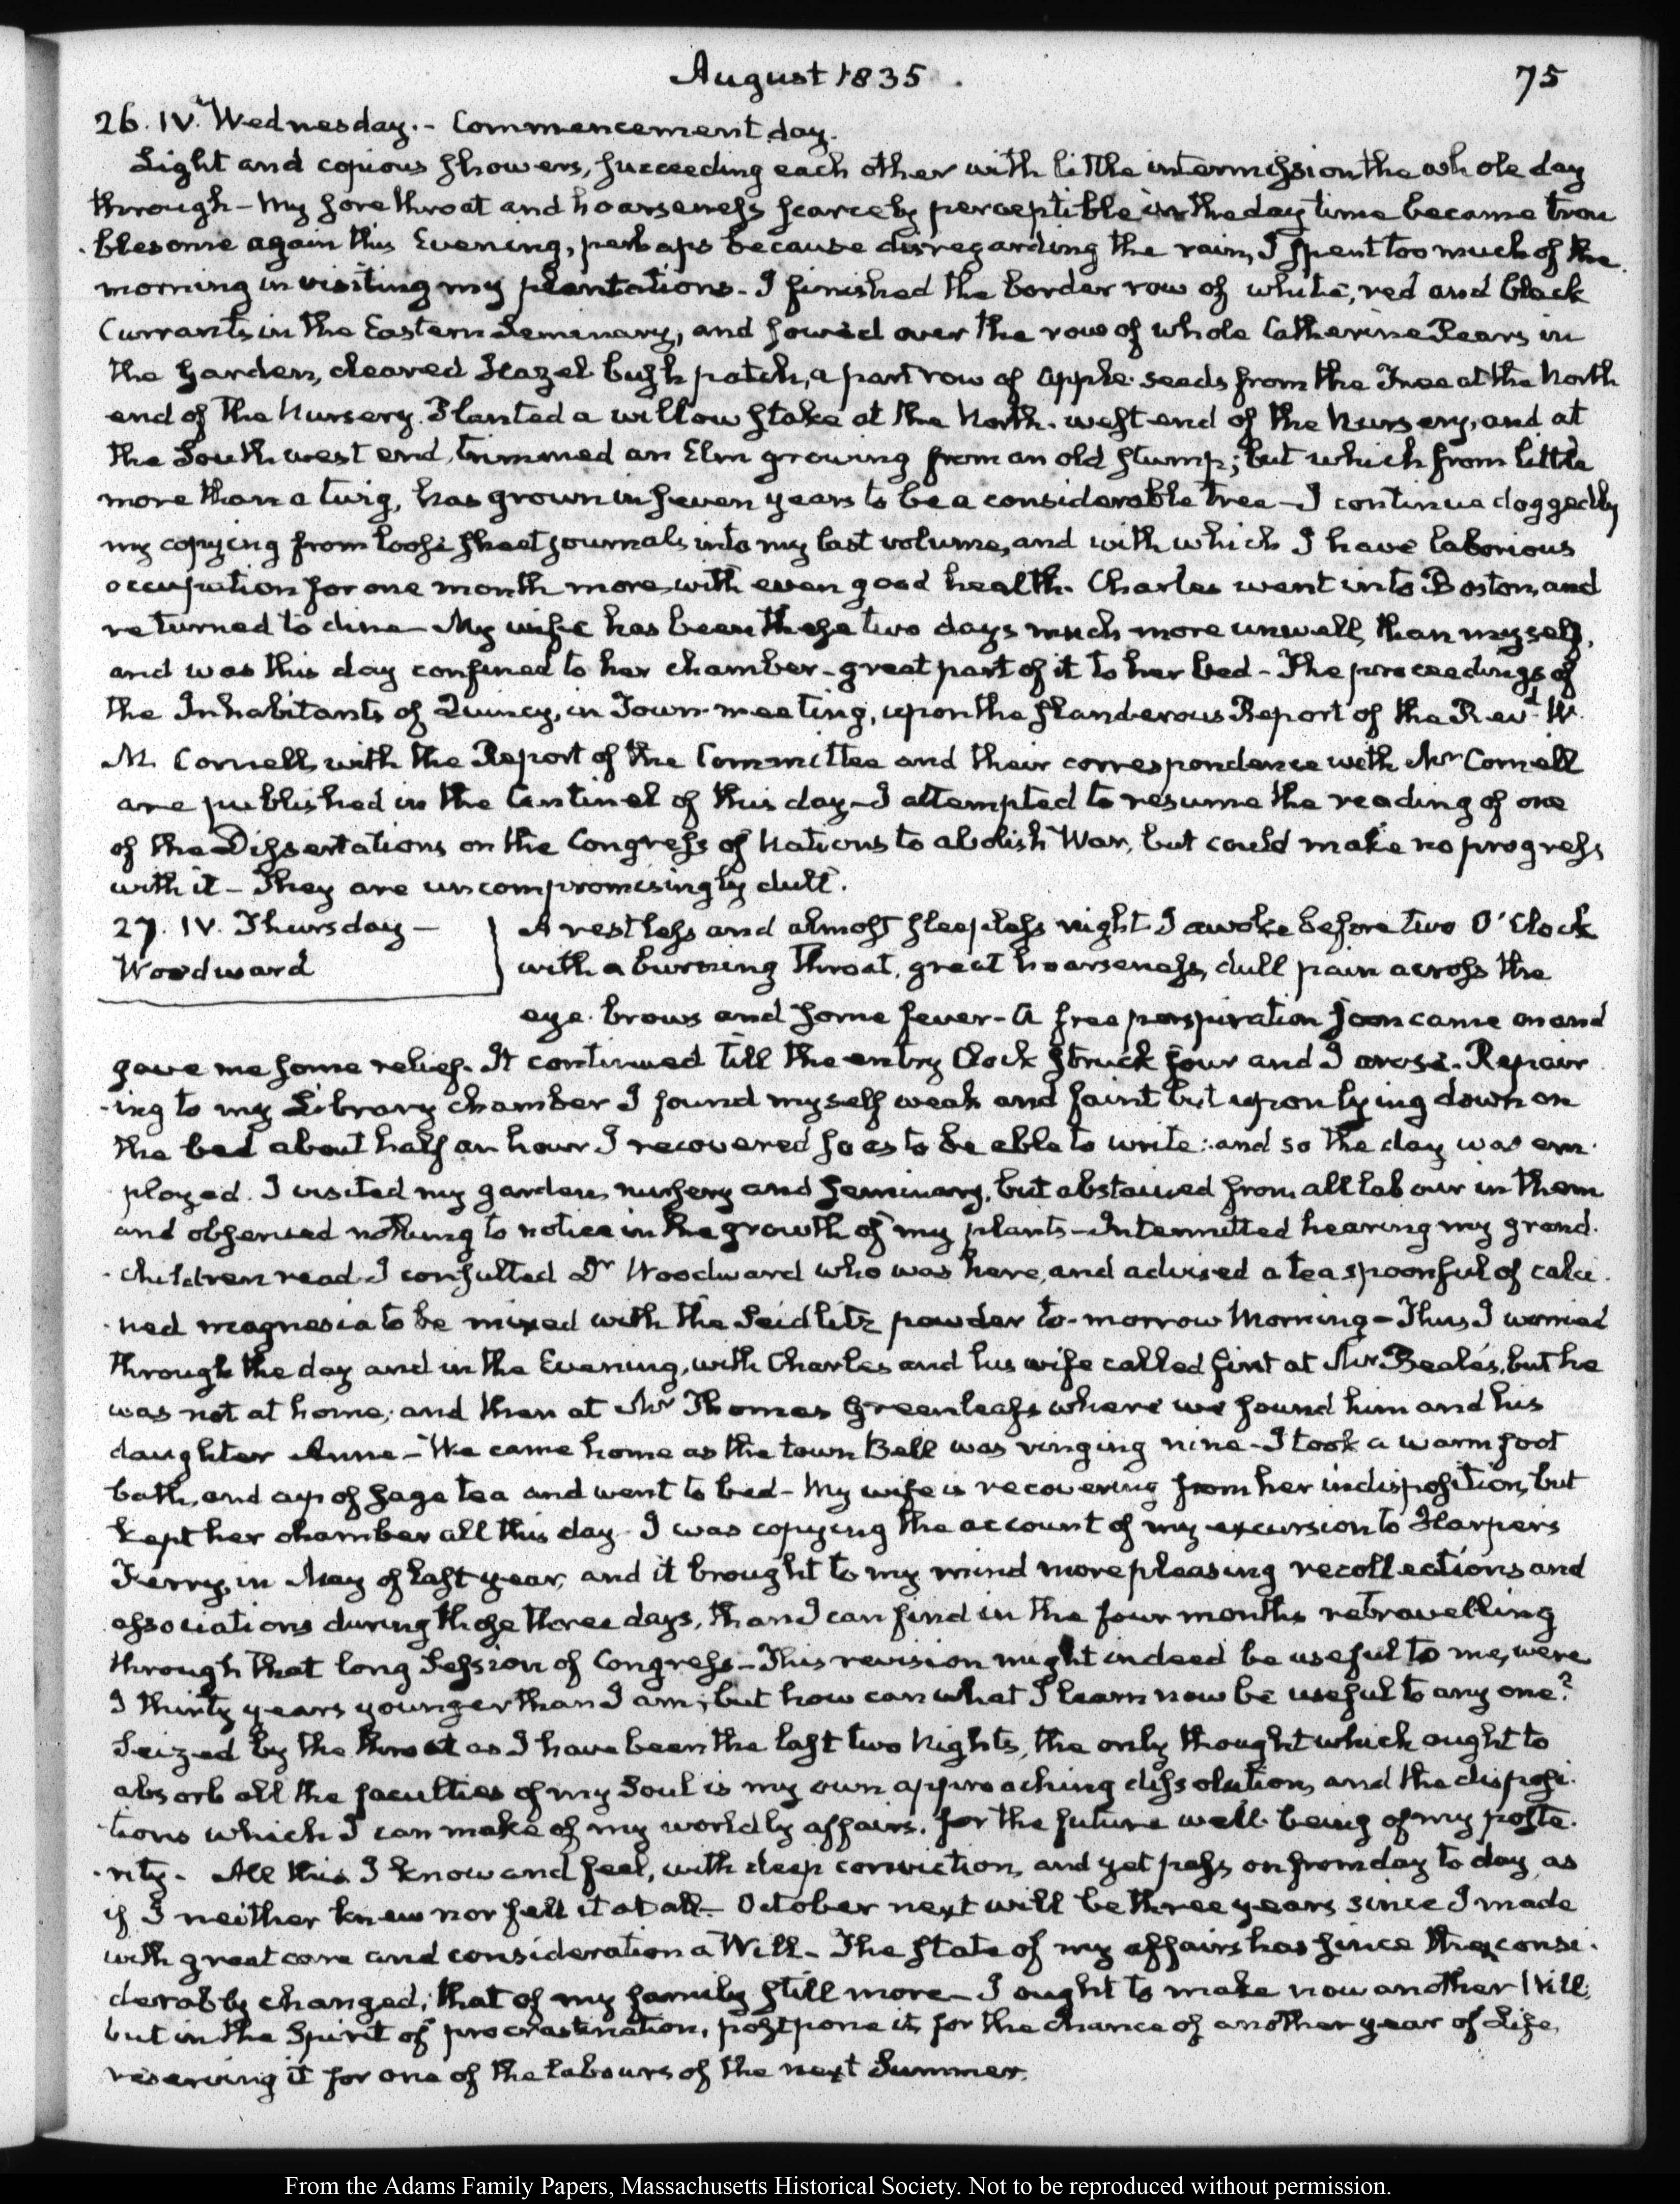 August 1835.
75
26. IV. Wednesday. - Commencement day.
Light and copious showers, succeeding each other with little intermission the whole day
through - My sore throat and hoarseness scarcely perceptible in the day time became trou
blesome again this Evening, perhaps because disregarding the rain, I spent too much of the
morning in visiting my plantations - I finished the border row of white, red and black
Currants in the Eastern Seminary, and sowed over the row of whole Catherine Pears in
the Garden, cleared Hazel bush patch, a part row of apple-seeds from the Tree at the North
end of the Nursery. Planted a willow stake at the North-west end of the Nursery, and at
the South west end, trimmed an Elm growing from an old stump; but which from little
more than a twig, has grown in seven years to be a considerable tree - I continue doggedly
my copying from loose sheet journals into my last volume, and with which I have laborious
occupation for one month more, with even good health. Charles went into Boston, and
returned to dine - My wife has been these two days much more unwell than myself,
and was this day confined to her chamber - great part of it to her bed - The proceedings of
the Inhabitants of Quincy, in Town-meeting, upon the slanderous Report of the Revd. W.
M. Cornell, with the Report of the Committee and their correspondence with Mr Cornell
are published in the Centinel of this day - I attempted to resume the reading of one
of the Dissertations on the Congress of Nations to abolish War, but could make no progress
with it - They are uncompromisingly dull.
27. IV. Thursday -
Woodward
A restless and almost sleepless night. I awoke before two O'Clock
with a burning throat, great hoarseness, dull pain across the
eye-brows and some fever - A free perspiration soon came on and
gave me some relief. It continued till the entry Clock struck four and I arose. Repair
-ing to my Library chamber I found myself weak and faint but upon lying down on
the bed about half an hour I recovered so as to be able to write: and so the day was em-
ployed. I visited my garden, nursery and Seminary, but abstained from all labour in them
and observed nothing to notice in the growth of my plants - Intermitted hearing my grand-
-children read. I consulted Dr Woodward who was here, and advised a teaspoonful of calci-
-ned magnesia to be mixed with the Seidlitz powder to-morrow Morning - Thus I worried
through the day and in the Evening, with Charles and his wife called first at Mr Beale's, but he
was not at home; and then at Mr Thomas Greenleaf's where we found him and his
daughter Anne - We came home as the town Bell was ringing nine - I took a warm foot
bath, and cup of sage tea and went to bed - My wife is recovering from her indisposition, but
kept her chamber all this day. I was copying the account of my excursion to Harpers
Ferry, in May of last year, and it brought to my mind more pleasing recollections and
associations during those three days, than I can find in the four months retravelling
through that long Session of Congress - This revision might indeed be useful to me, were
I thirty years younger than I am; but how can what I learn now be useful to any one?
Seized by the throat as I have been the last two Nights, the only thought which ought to
absorb all the faculties of my Soul is my own approaching dissolution, and the disposi-
-tions which I can make of my worldly affairs, for the future well-being of my poste-
-rity. All this I know and feel, with deep conviction, and yet pass on from day to day, as
if I neither knew nor felt it at all - October next will be three years since I made
with great care and consideration a Will - The state of my affairs has since then consi-
derably changed; that of my family still more - I ought to make now another Will;
but in the Spirit of procrastination, postpone it, for the chance of another year of Life,
reserving it for one of the labours of the next Summer.
From the Adams Family Papers, Massachusetts Historical Society. Not to be reproduced without permission.